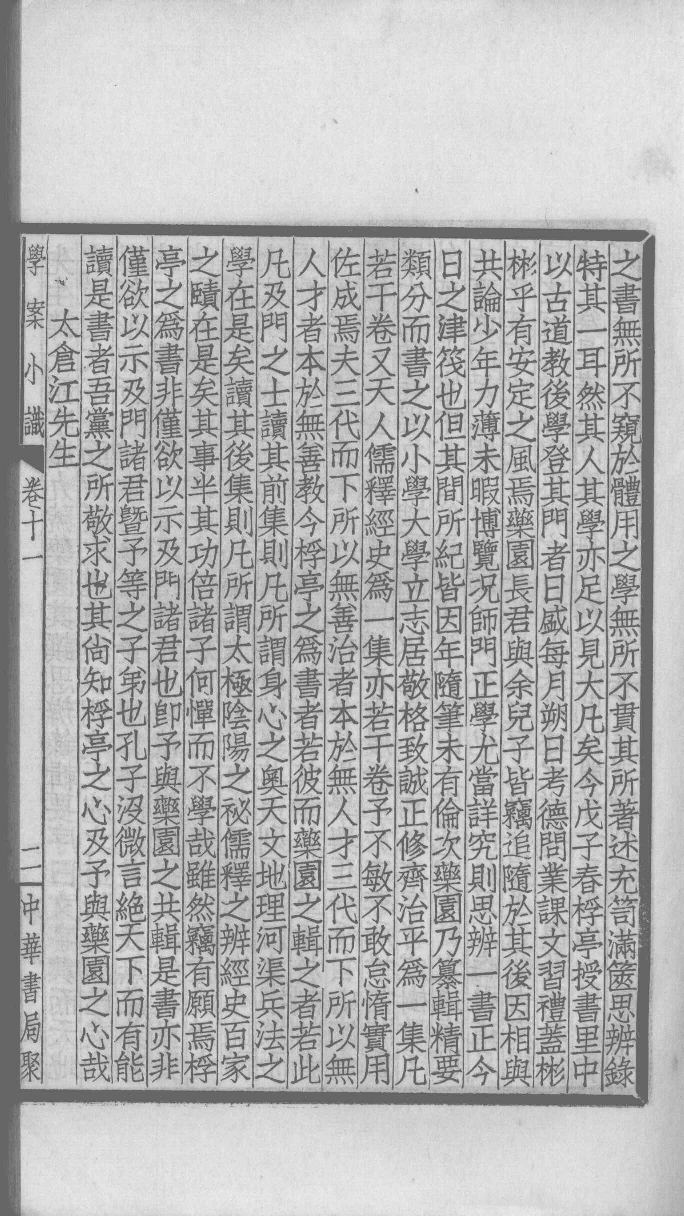 之書無所不窺於體用之學無所不貫其所著述充笥滿篋思辨錄
特其一耳然其人其學亦足以見大凡矣今戊子春桴亭授書里中
以古道教後學登其門者日盛每月朔日考德問業課文習禮蓋彬
彬乎有安定之風焉藥園長君與余兒子皆竊追隨於其後因相與
共論少年力薄未暇博覽況師門正學尤當詳究則思辨一書正今
日之津筏也但其間所紀皆因年隨筆未有倫次藥園乃纂輯精要
類分而書之以小學大學立志居敬格致誠正修齊治平為一集凡
若干卷又天人儒釋經史為一集亦若干卷予不敏不敢怠惰實用
佐成焉夫三代而下所以無善治者本於無人才三代而下所以無
人才者本於無善教今桴亭之為書者若彼而藥園之輯之者若此
凡及門之士讀其前集則凡所謂身心之奧天文地理河渠兵法之
學在是矣讀其後集則凡所謂太極陰陽之祕儒釋之辨經史百家
之賾在是矣其事半其功倍諸子何憚而不學哉雖然竊有願焉桴
亭之為書非僅欲以示及門諸君也卽予與藥園之共輯是書亦非
僅欲以示及門諸君曁予等之子弟也孔子沒微言絕天下而有能
讀是書者吾黨之所敬求也其尙知桴亭之心及予與藥園之心哉
太倉江先生
學案小識 卷十一 二 中華書局聚